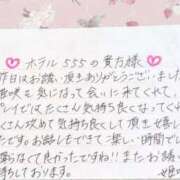 ホテル555の貴方様
昨日はお誘い頂きありがとうございました
咲に気になって会いに来てくれて
プレイではたくさん気持ち良くなって
くさん攻めて気持ち良くして頂き嬉しい
です。お話しもできて楽しい時間で
らなくて良かったですね!!またお誘い
しております。